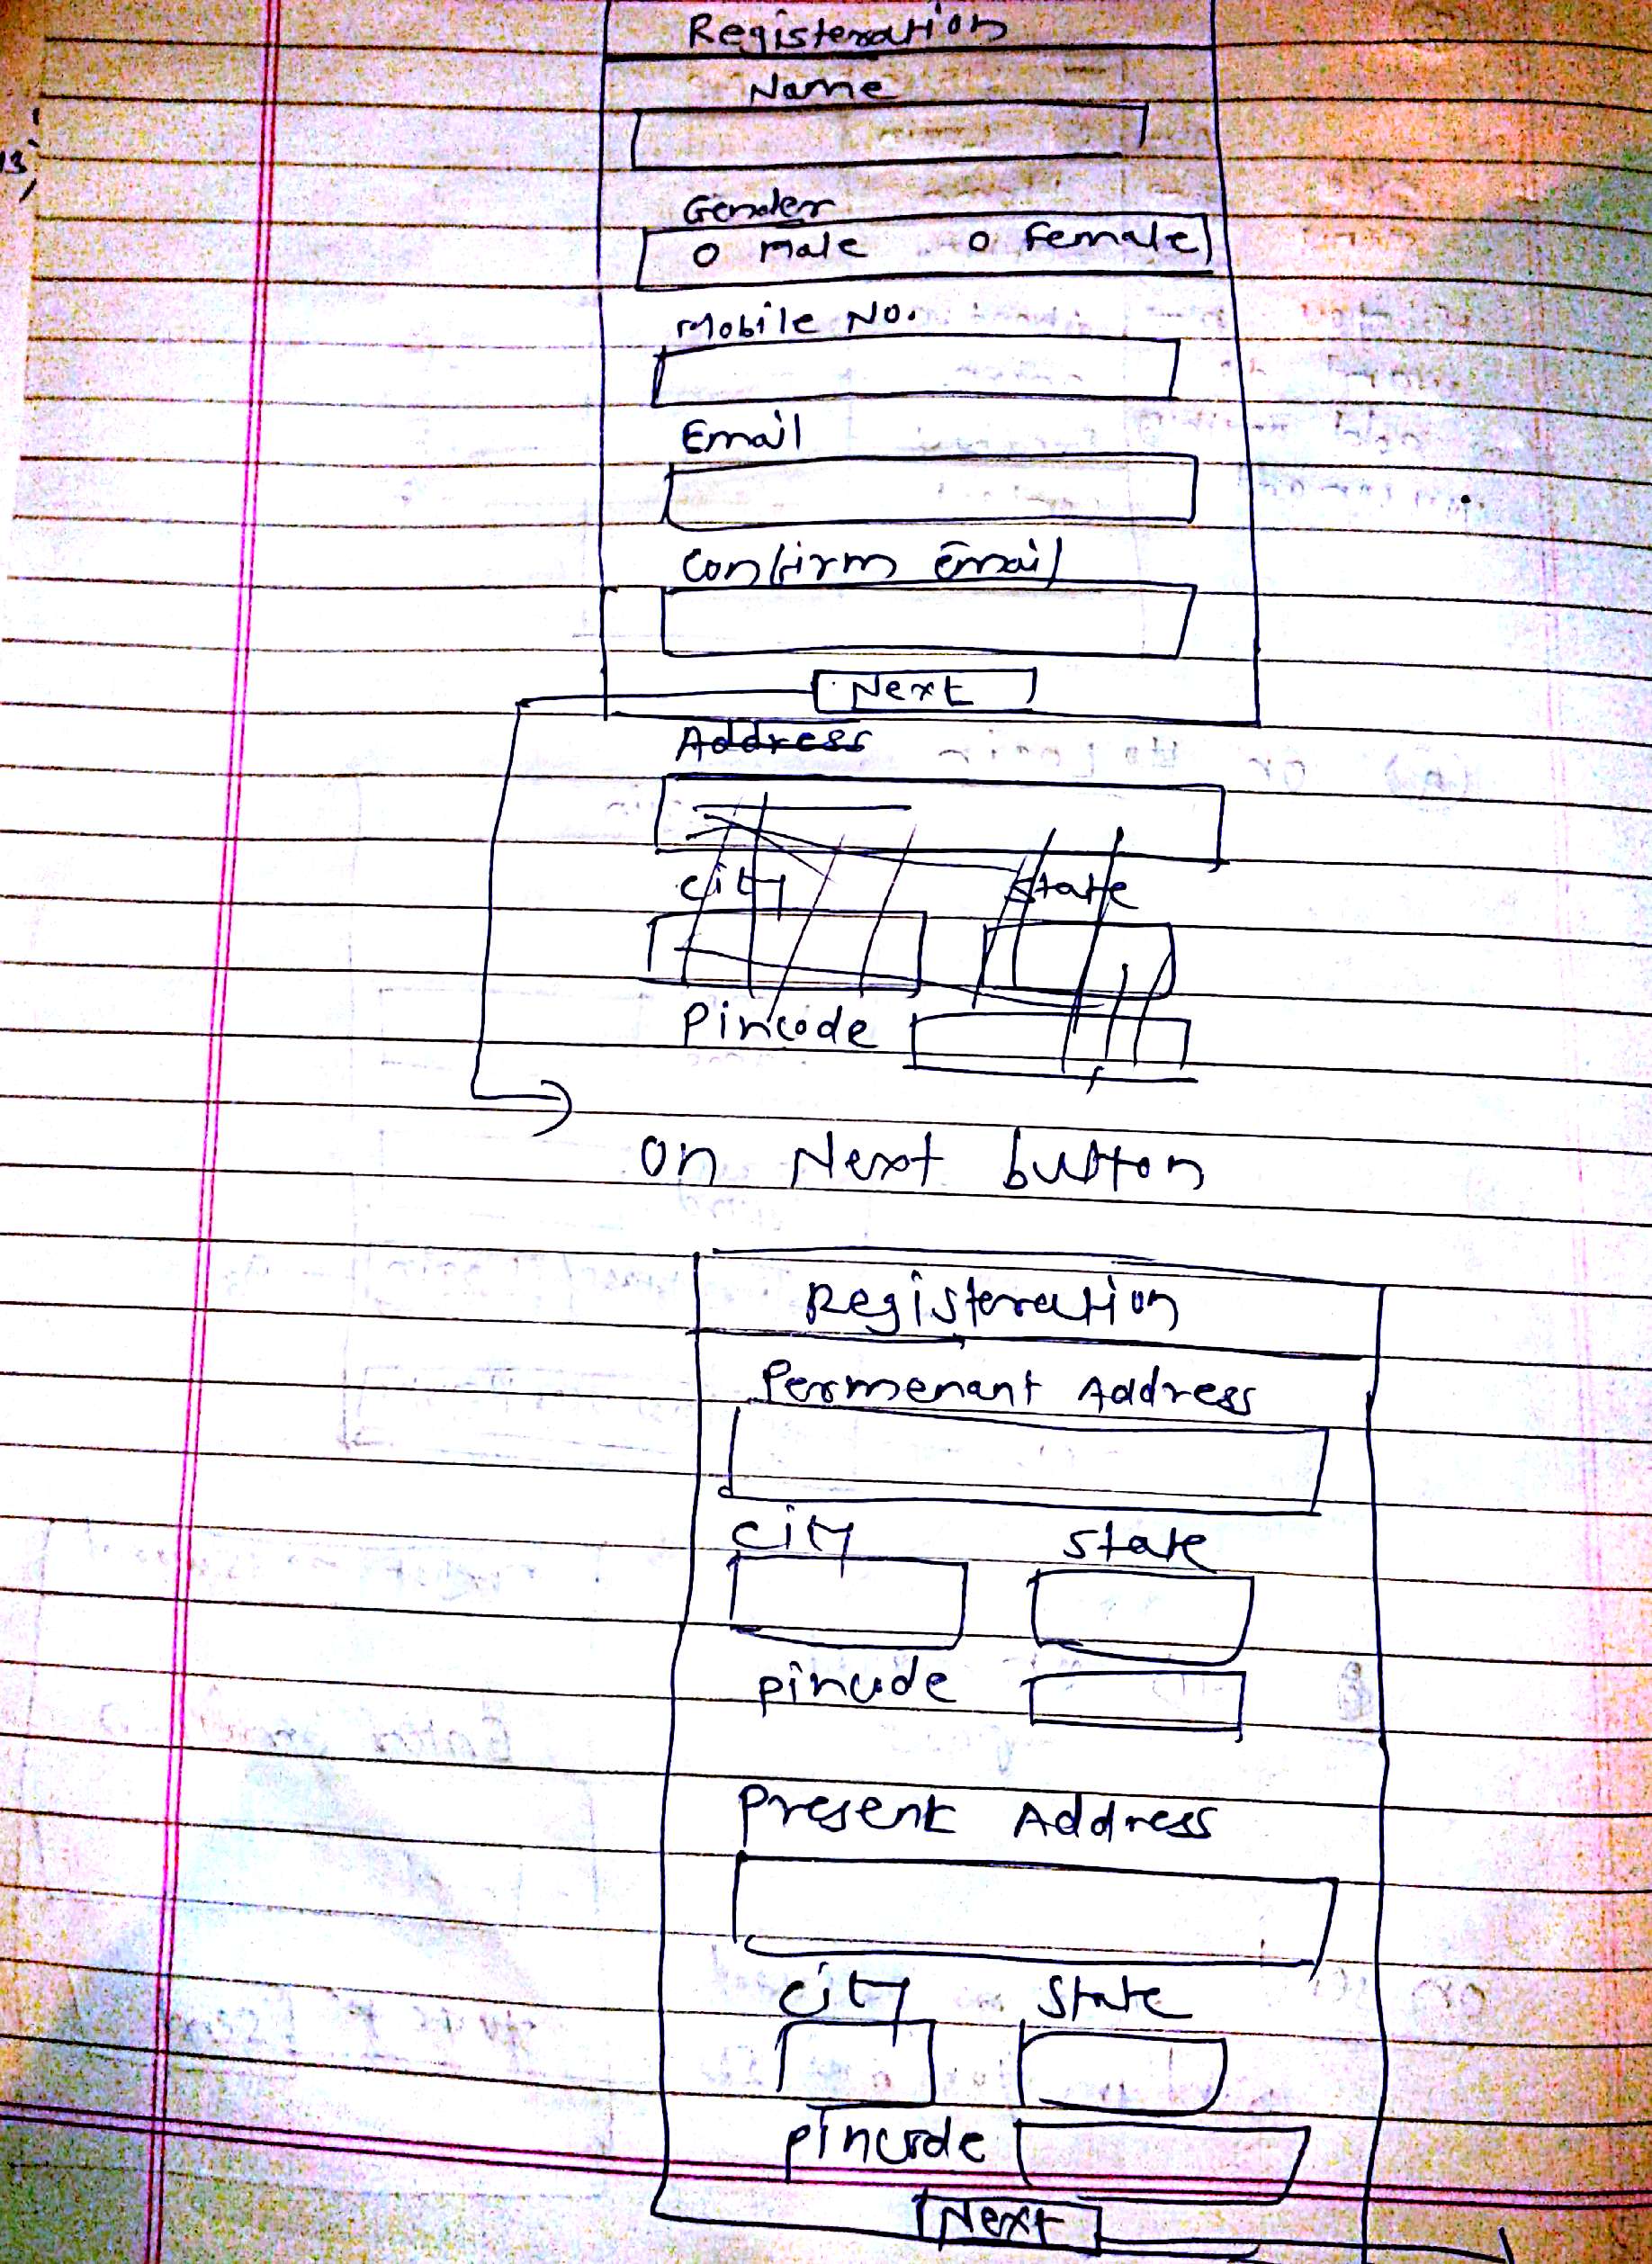 Registeration
Name
13
Gender
o Male o Female
Mobile No.
Email
Confirm Email
Next
Address
City State
Pincode
on Next button
Registeration
Permenant Address
City State
pincode
Present Address
City State
pincode
Next